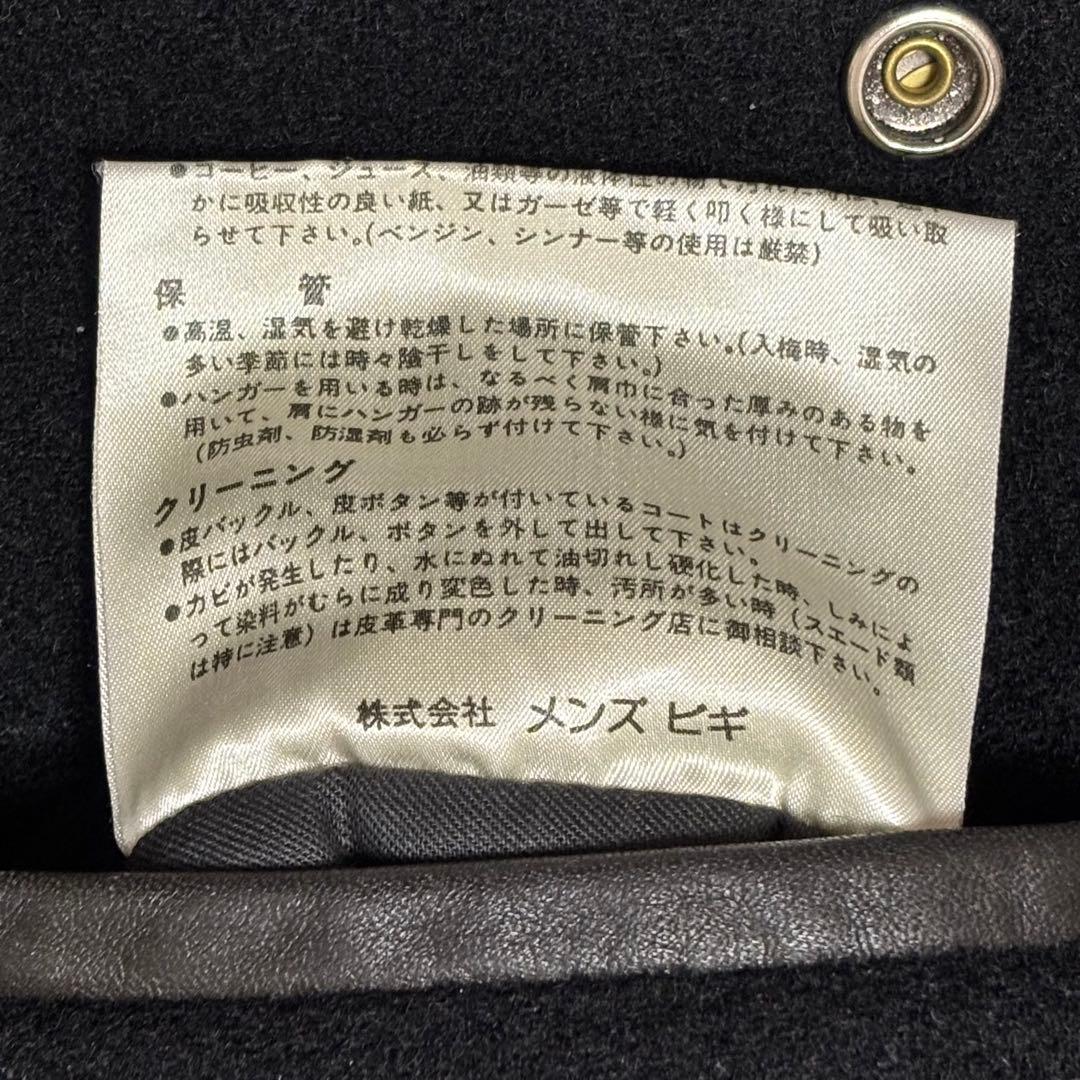 ●コーヒー、ジュース、油類等の液体性の物で
かに吸収性の良い紙、又はガーゼ等で軽く叩く様にして吸い取
らせて下さい。(ベンジン、シンナー等の使用は厳禁)
保 管
●高温、湿気を避け乾燥した場所に保管下さい。(入梅時、湿気の
多い季節には時々陰干しをして下さい。)
●ハンガーを用いる時は、なるべく肩巾に合った厚みのある物を
用いて、肩にハンガーの跡が残らない様に気を付けて下さい。
(防虫剤、防湿剤も必らず付けて下さい。)
クリーニング
●皮バックル、皮ボタン等が付いているコートはクリーニングの
際にはバックル、ボタンを外して出して下さい。
●カビが発生したり、水にぬれて油切れし硬化した時、しみによ
って染料がむらに成り変色した時、汚所が多い時(スエード類
は特に注意)は皮革専門のクリーニング店に御相談下さい。
株式会社 メンズ ビギ